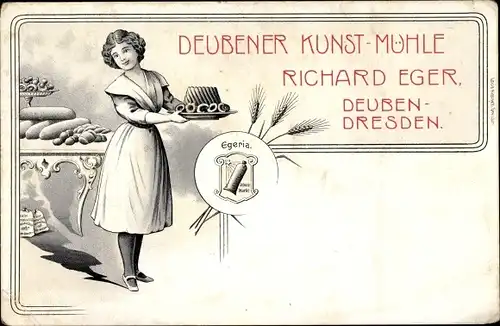 DEUBENER KUNST-MÜHLE
RICHARD EGER,
DEUBEN-
DRESDEN.
Egeria.